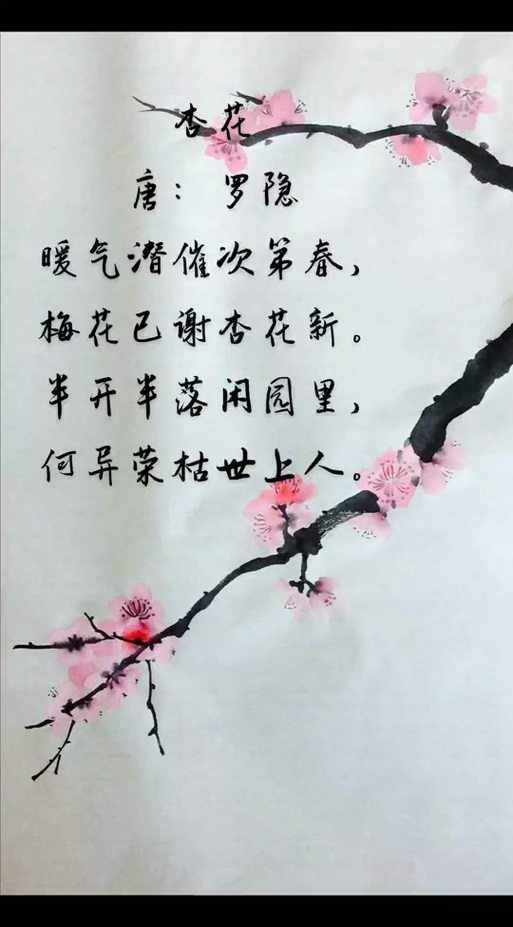 杏花
唐：罗隐
暖气潜催次第春，
梅花已谢杏花新。
半开半落闲园里，
何异荣枯世上人。